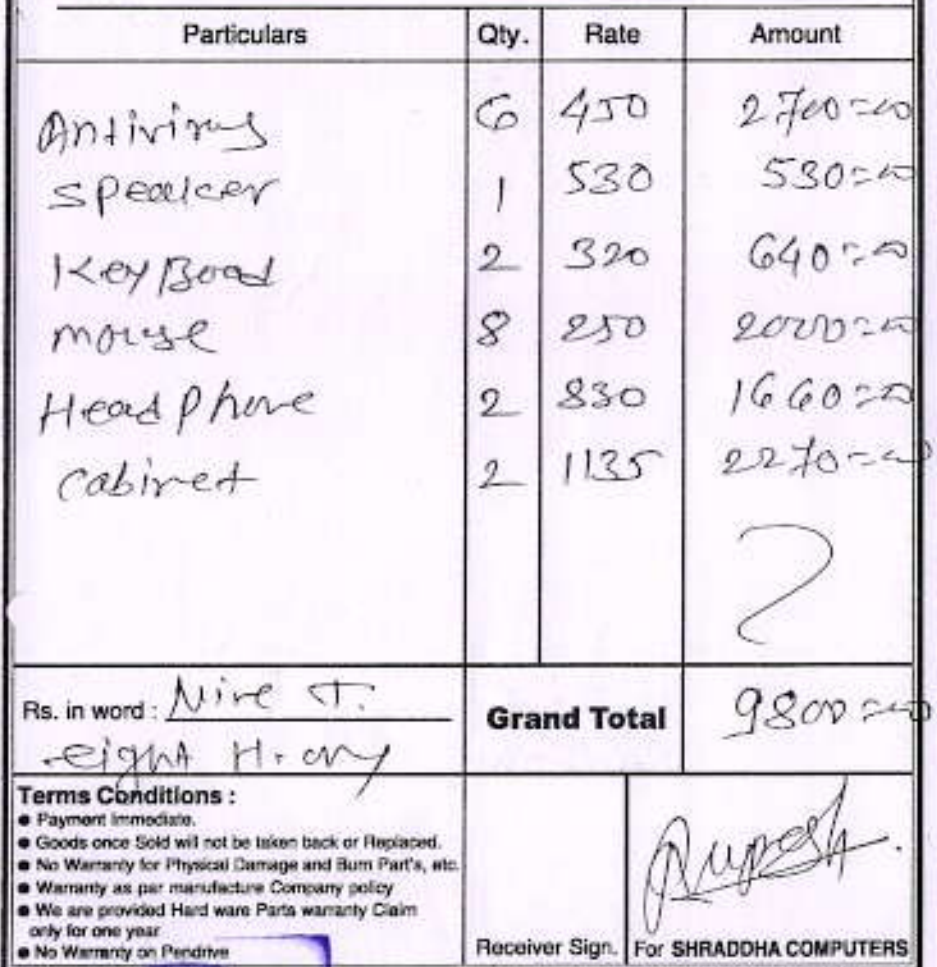 Particulars Qty. Rate Amount
Antivirus 6 450 2700=00
speaker 1 530 530=00
KeyBoad 2 320 640=00
mouse 8 250 2000=00
Head Phone 2 830 1660=00
cabinet 2 1135 2270=00
Rs. in word : Nine T. Grand Total 9800=00
eight H. only
Terms Conditions :
● Payment Immediate.
● Goods once Sold will not be taken back or Replaced.
● No Warranty for Physical Damage and Burn Part's, etc.
● Warranty as par manufacture Company policy
● We are provided Hard ware Parts warranty Claim
only for one year
● No Warranty on Pendrive
Rupesh.
Receiver Sign. For SHRADDHA COMPUTERS